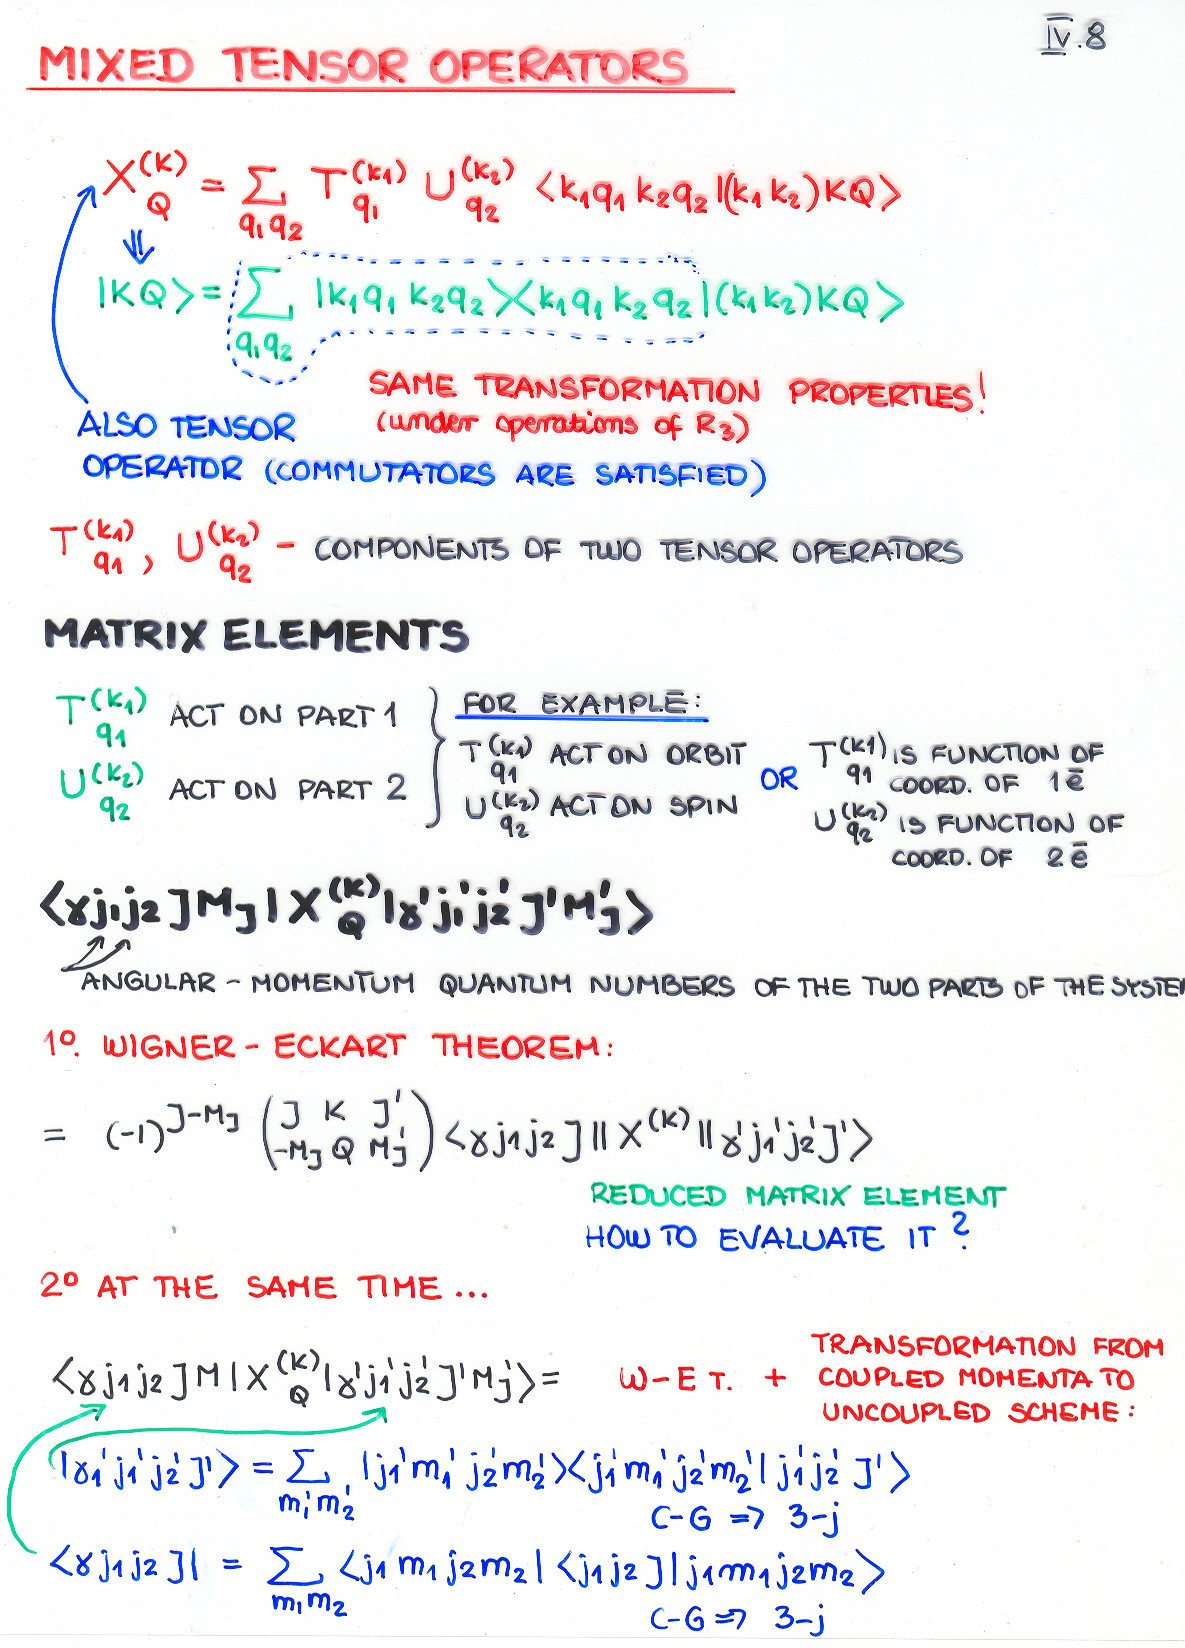 IV.8
MIXED TENSOR OPERATORS
X^(K)_Q = Σ_{q1q2} T^(k1)_{q1} U^(k2)_{q2} <k1q1 k2q2|(k1k2)KQ>
⇓
|KQ> = Σ_{q1q2} |k1q1 k2q2><k1q1 k2q2|(k1k2)KQ>
SAME TRANSFORMATION PROPERTIES!
(under operations of R3)
ALSO TENSOR
OPERATOR (COMMUTATORS ARE SATISFIED)
T^(k1)_{q1}, U^(k2)_{q2} - COMPONENTS OF TWO TENSOR OPERATORS
MATRIX ELEMENTS
T^(k1)_{q1} ACT ON PART 1
U^(k2)_{q2} ACT ON PART 2
FOR EXAMPLE:
T^(k1)_{q1} ACT ON ORBIT
U^(k2)_{q2} ACT ON SPIN
OR
T^(k1)_{q1} IS FUNCTION OF
COORD. OF 1ē
U^(k2)_{q2} IS FUNCTION OF
COORD. OF 2ē
<γj1j2JM_J|X^(K)_Q|γ'j1'j2'J'M_J'>
ANGULAR-MOMENTUM QUANTUM NUMBERS OF THE TWO PARTS OF THE SYSTE
1º. WIGNER-ECKART THEOREM:
= (-1)^{J-M_J} (J K J' / -M_J Q M_J') <γj1j2J||X^(K)||γ'j1'j2'J'>
REDUCED MATRIX ELEMENT
HOW TO EVALUATE IT?
2º AT THE SAME TIME...
<γj1j2JM|X^(K)_Q|γ'j1'j2'J'M_J'> = W-E T. +
TRANSFORMATION FROM
COUPLED MOMENTA TO
UNCOUPLED SCHEME:
|γ1'j1'j2'J'> = Σ_{m1'm2'} |j1'm1'j2'm2'><j1'm1'j2'm2'|j1'j2'J'>
C-G ⇒ 3-j
<γj1j2J| = Σ_{m1m2} <j1m1j2m2| <j1j2J|j1m1j2m2>
C-G ⇒ 3-j